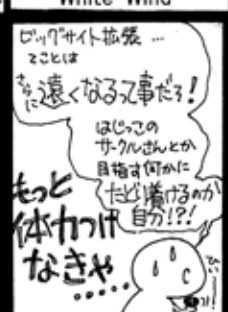 White Wind
ビッグサイト拡張…
てことは
さらに遠くなるって事だろ!
はじっこの
サークルさんとか
目指す何かに
たどり着けるのか
自分!?!
もっと
体力つけ
なきゃ
.....
ひぃー